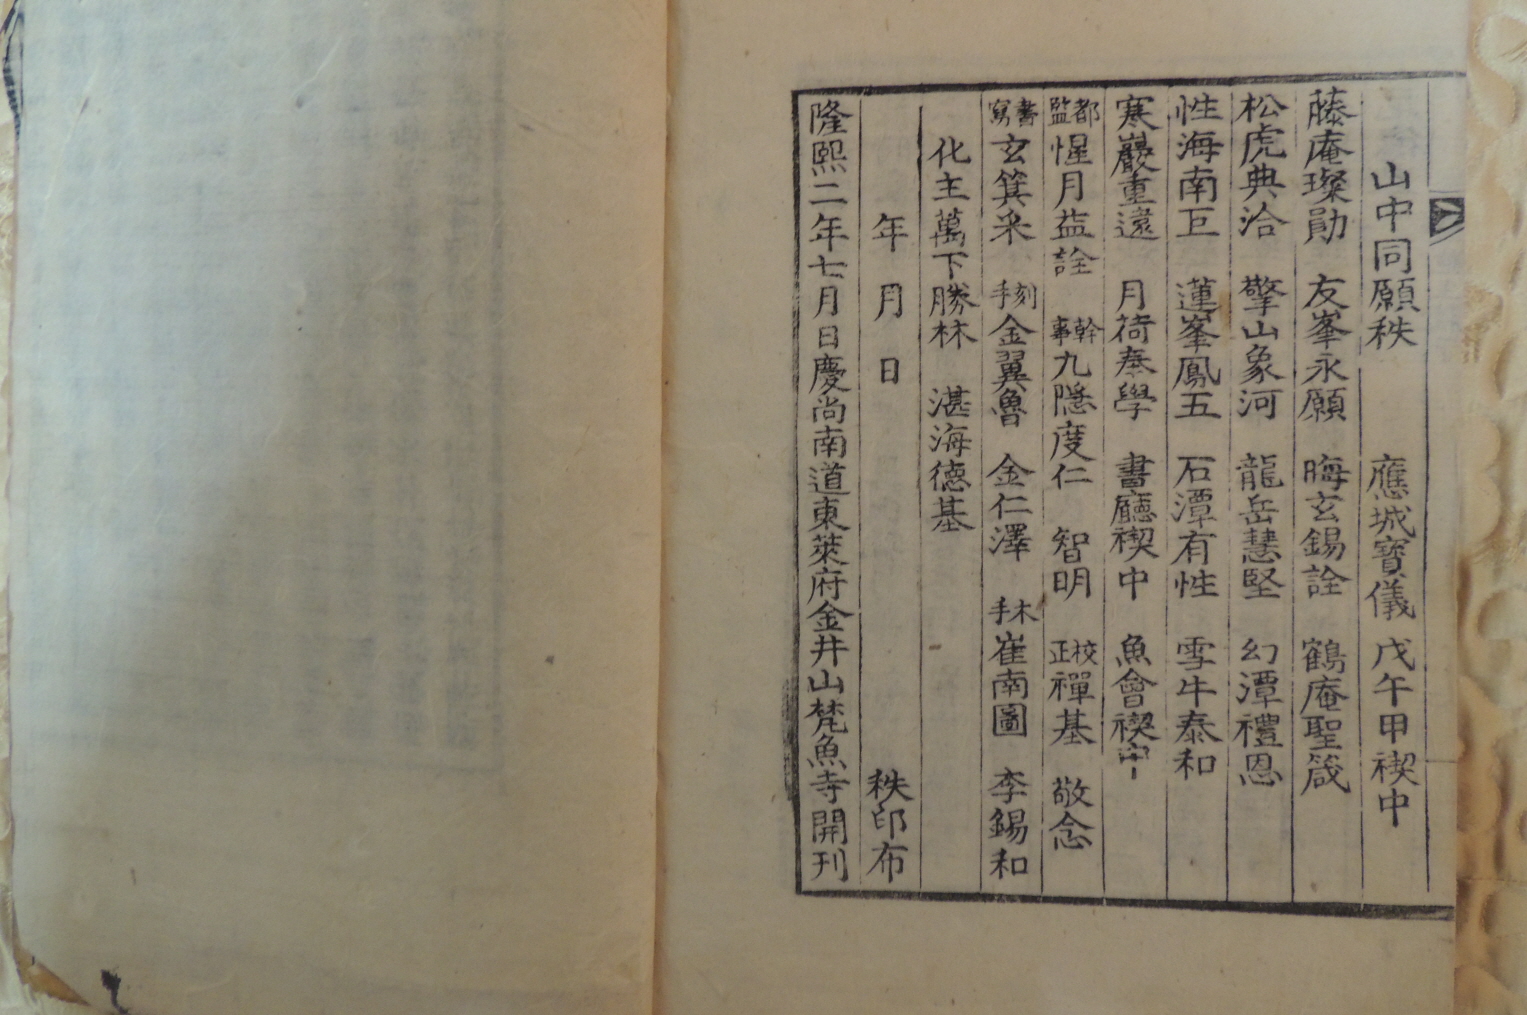 山中同願秩　應城寶儀　戊午甲禊中
藤庵璨勛　友峯永願　晦玄錫詮　鶴庵聖箴
松虎典洽　擎山象河　龍岳慧堅　幻潭禮恩
性海南巨　蓮峯鳳五　石潭有性　雪牛泰和
寒巖重遠　月荷奉學　書廳禊中　魚會禊中
都監惺月益詮　幹事九隱度仁　智明　校正禪基　敬念
書寫玄箕釆　刻手金翼魯　金仁澤　木手崔南圖　李錫和
化主萬下勝林　湛海德基
年　月　日　秩印布
隆熙二年七月日慶尚南道東萊府金井山梵魚寺開刊